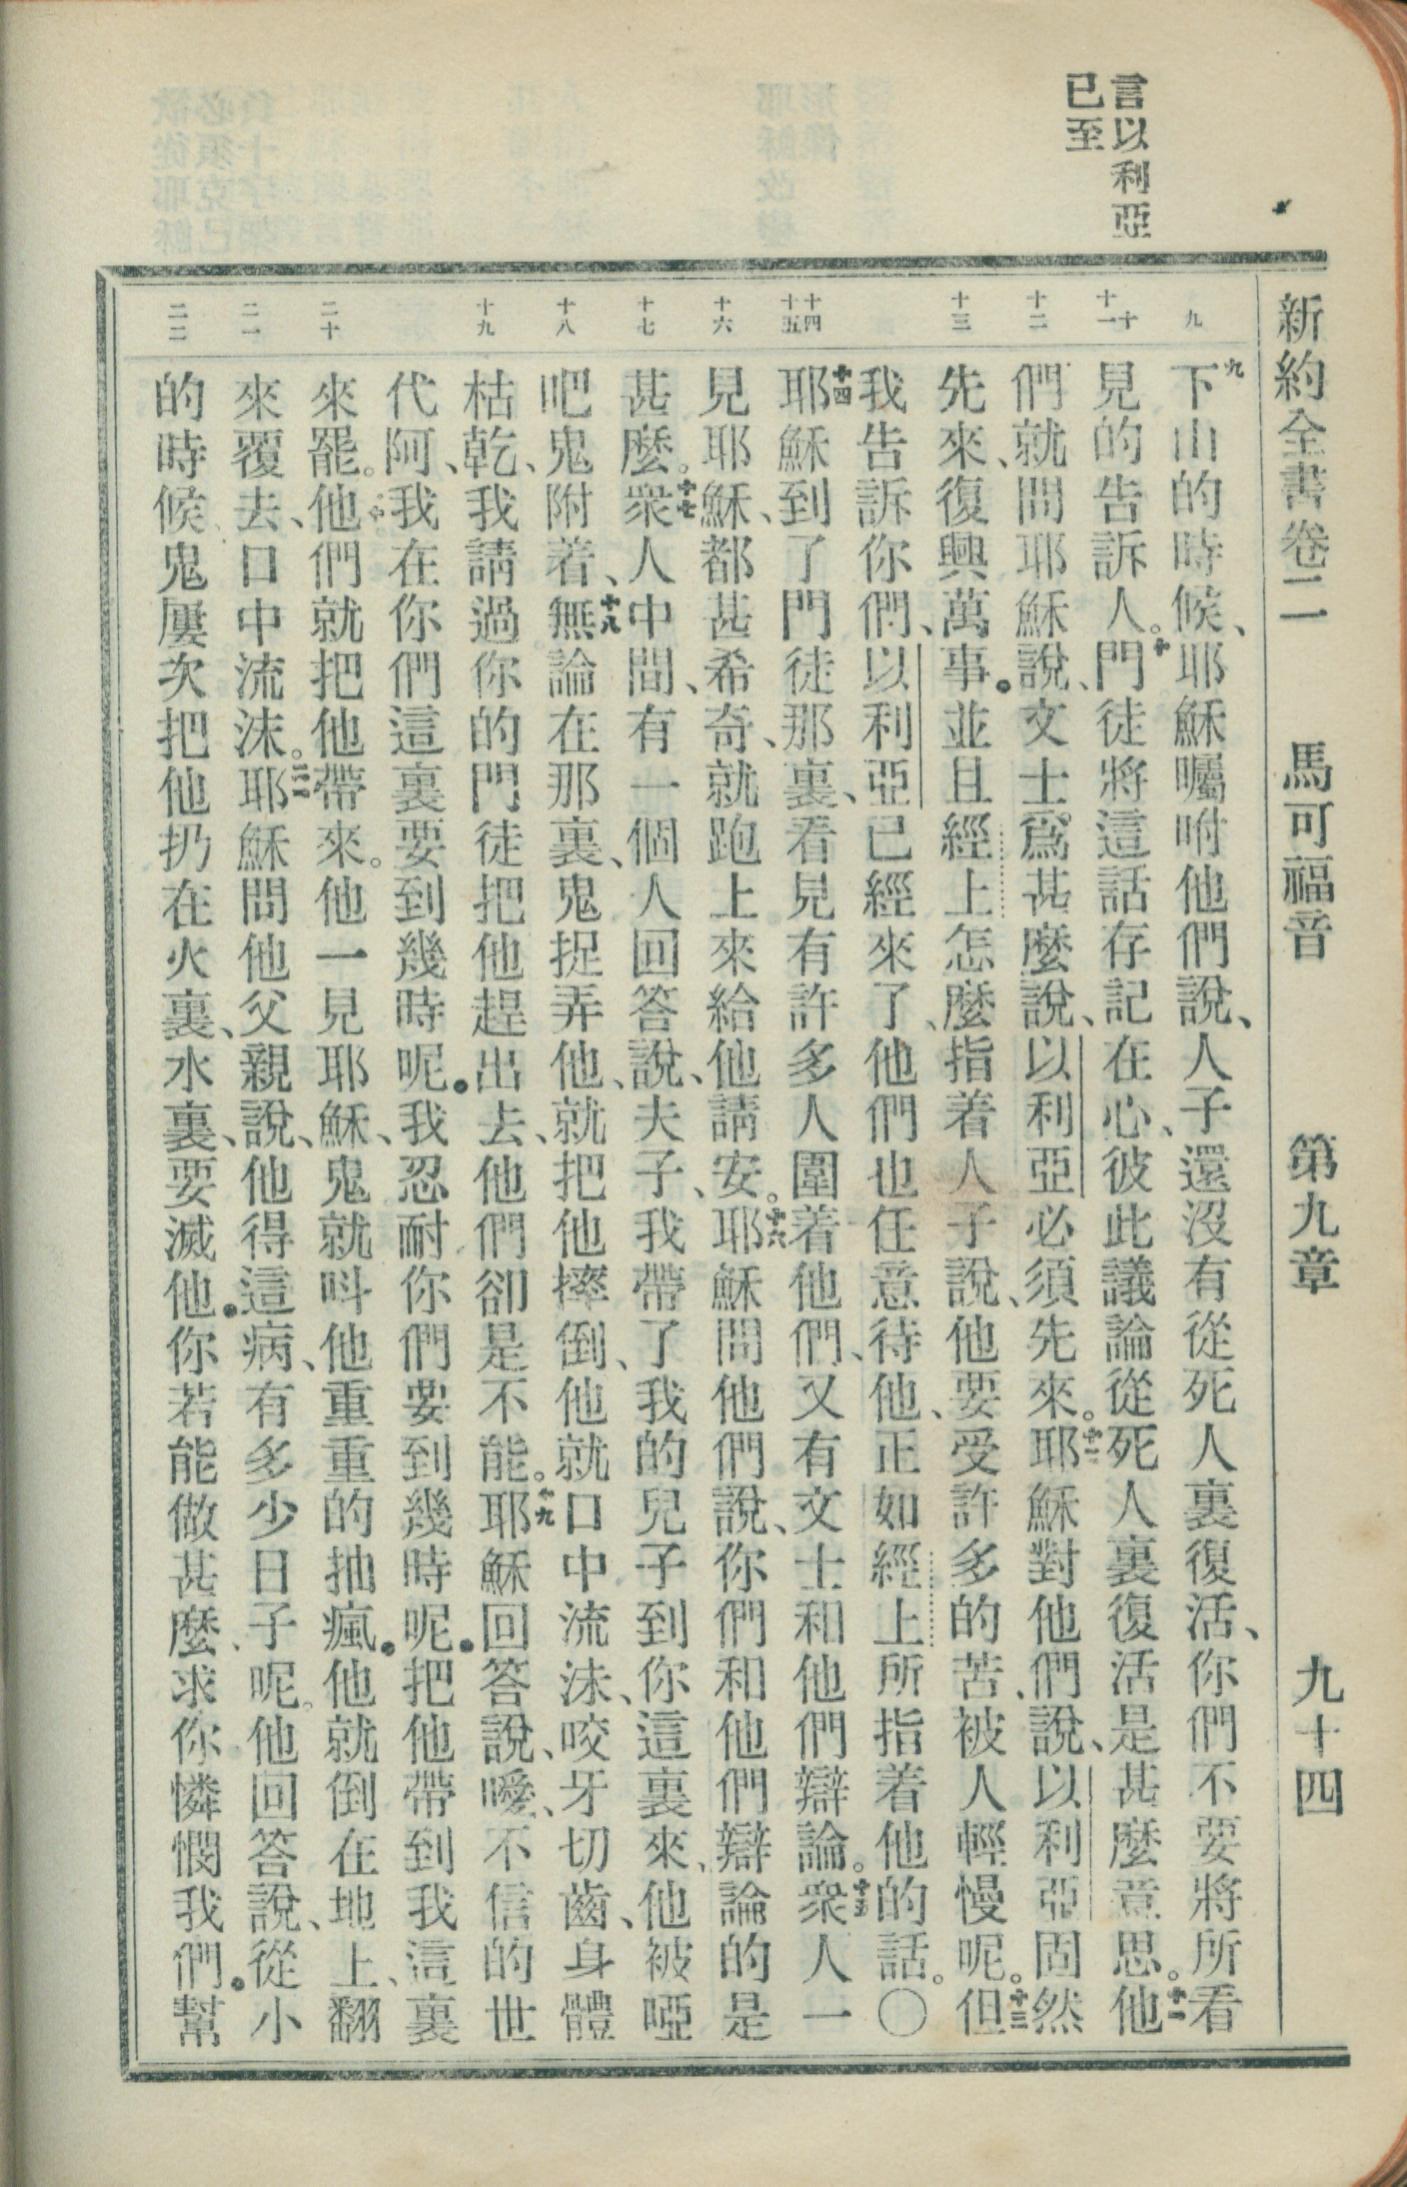 言以利亞
已至
新約全書卷二 馬可福音 第九章 九十四
九
十
十一
十二
十三
十四
十五
十六
十七
十八
十九
二十
二一
二二
九下山的時候、耶穌囑咐他們說、人子還沒有從死人裏復活、你們不要將所看
見的告訴人。十門徒將這話存記在心、彼此議論從死人裏復活是甚麼意思。十一他
們就問耶穌說、文士爲甚麼說、以利亞必須先來。十二耶穌對他們說、以利亞固然
先來、復興萬事．並且經上怎麼指着人子說、他要受許多的苦、被人輕慢呢。十三但
我告訴你們、以利亞已經來了、他們也任意待他、正如經上所指着他的話。〇
十四耶穌到了門徒那裏、看見有許多人圍着他們、又有文士和他們辯論。十五衆人一
見耶穌、都甚希奇、就跑上來給他請安。十六耶穌問他們說、你們和他們辯論的是
甚麼。十七衆人中間、有一個人回答說、夫子、我帶了我的兒子到你這裏來、他被啞
吧鬼附着、十八無論在那裏、鬼捉弄他、就把他摔倒、他就口中流沫、咬牙切齒、身體
枯乾、我請過你的門徒把他趕出去、他們卻是不能。十九耶穌回答說、噯、不信的世
代阿、我在你們這裏要到幾時呢．我忍耐你們要到幾時呢．把他帶到我這裏
來罷。二十他們就把他帶來。他一見耶穌、鬼就呌他重重的抽瘋．他就倒在地上、翻
來覆去、口中流沫。二一耶穌問他父親說、他得這病、有多少日子呢。他回答說、從小
的時候、鬼屢次把他扔在火裏、水裏、要滅他．你若能做甚麼、求你憐憫我們．幫